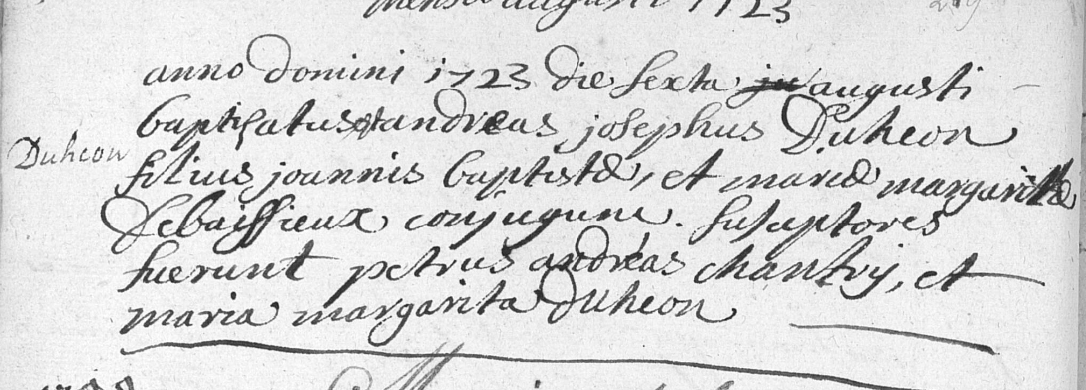 mense augusti 1723
anno domini 1723 die sexta ju augusti
baptisatus est andreas josephus Duheon
Duheon
filius joannis baptistæ, et mariæ margaritæ
Lebaissieux conjugum. susceptores
fuerunt petrus andréas chantry, et
maria margarita duheon